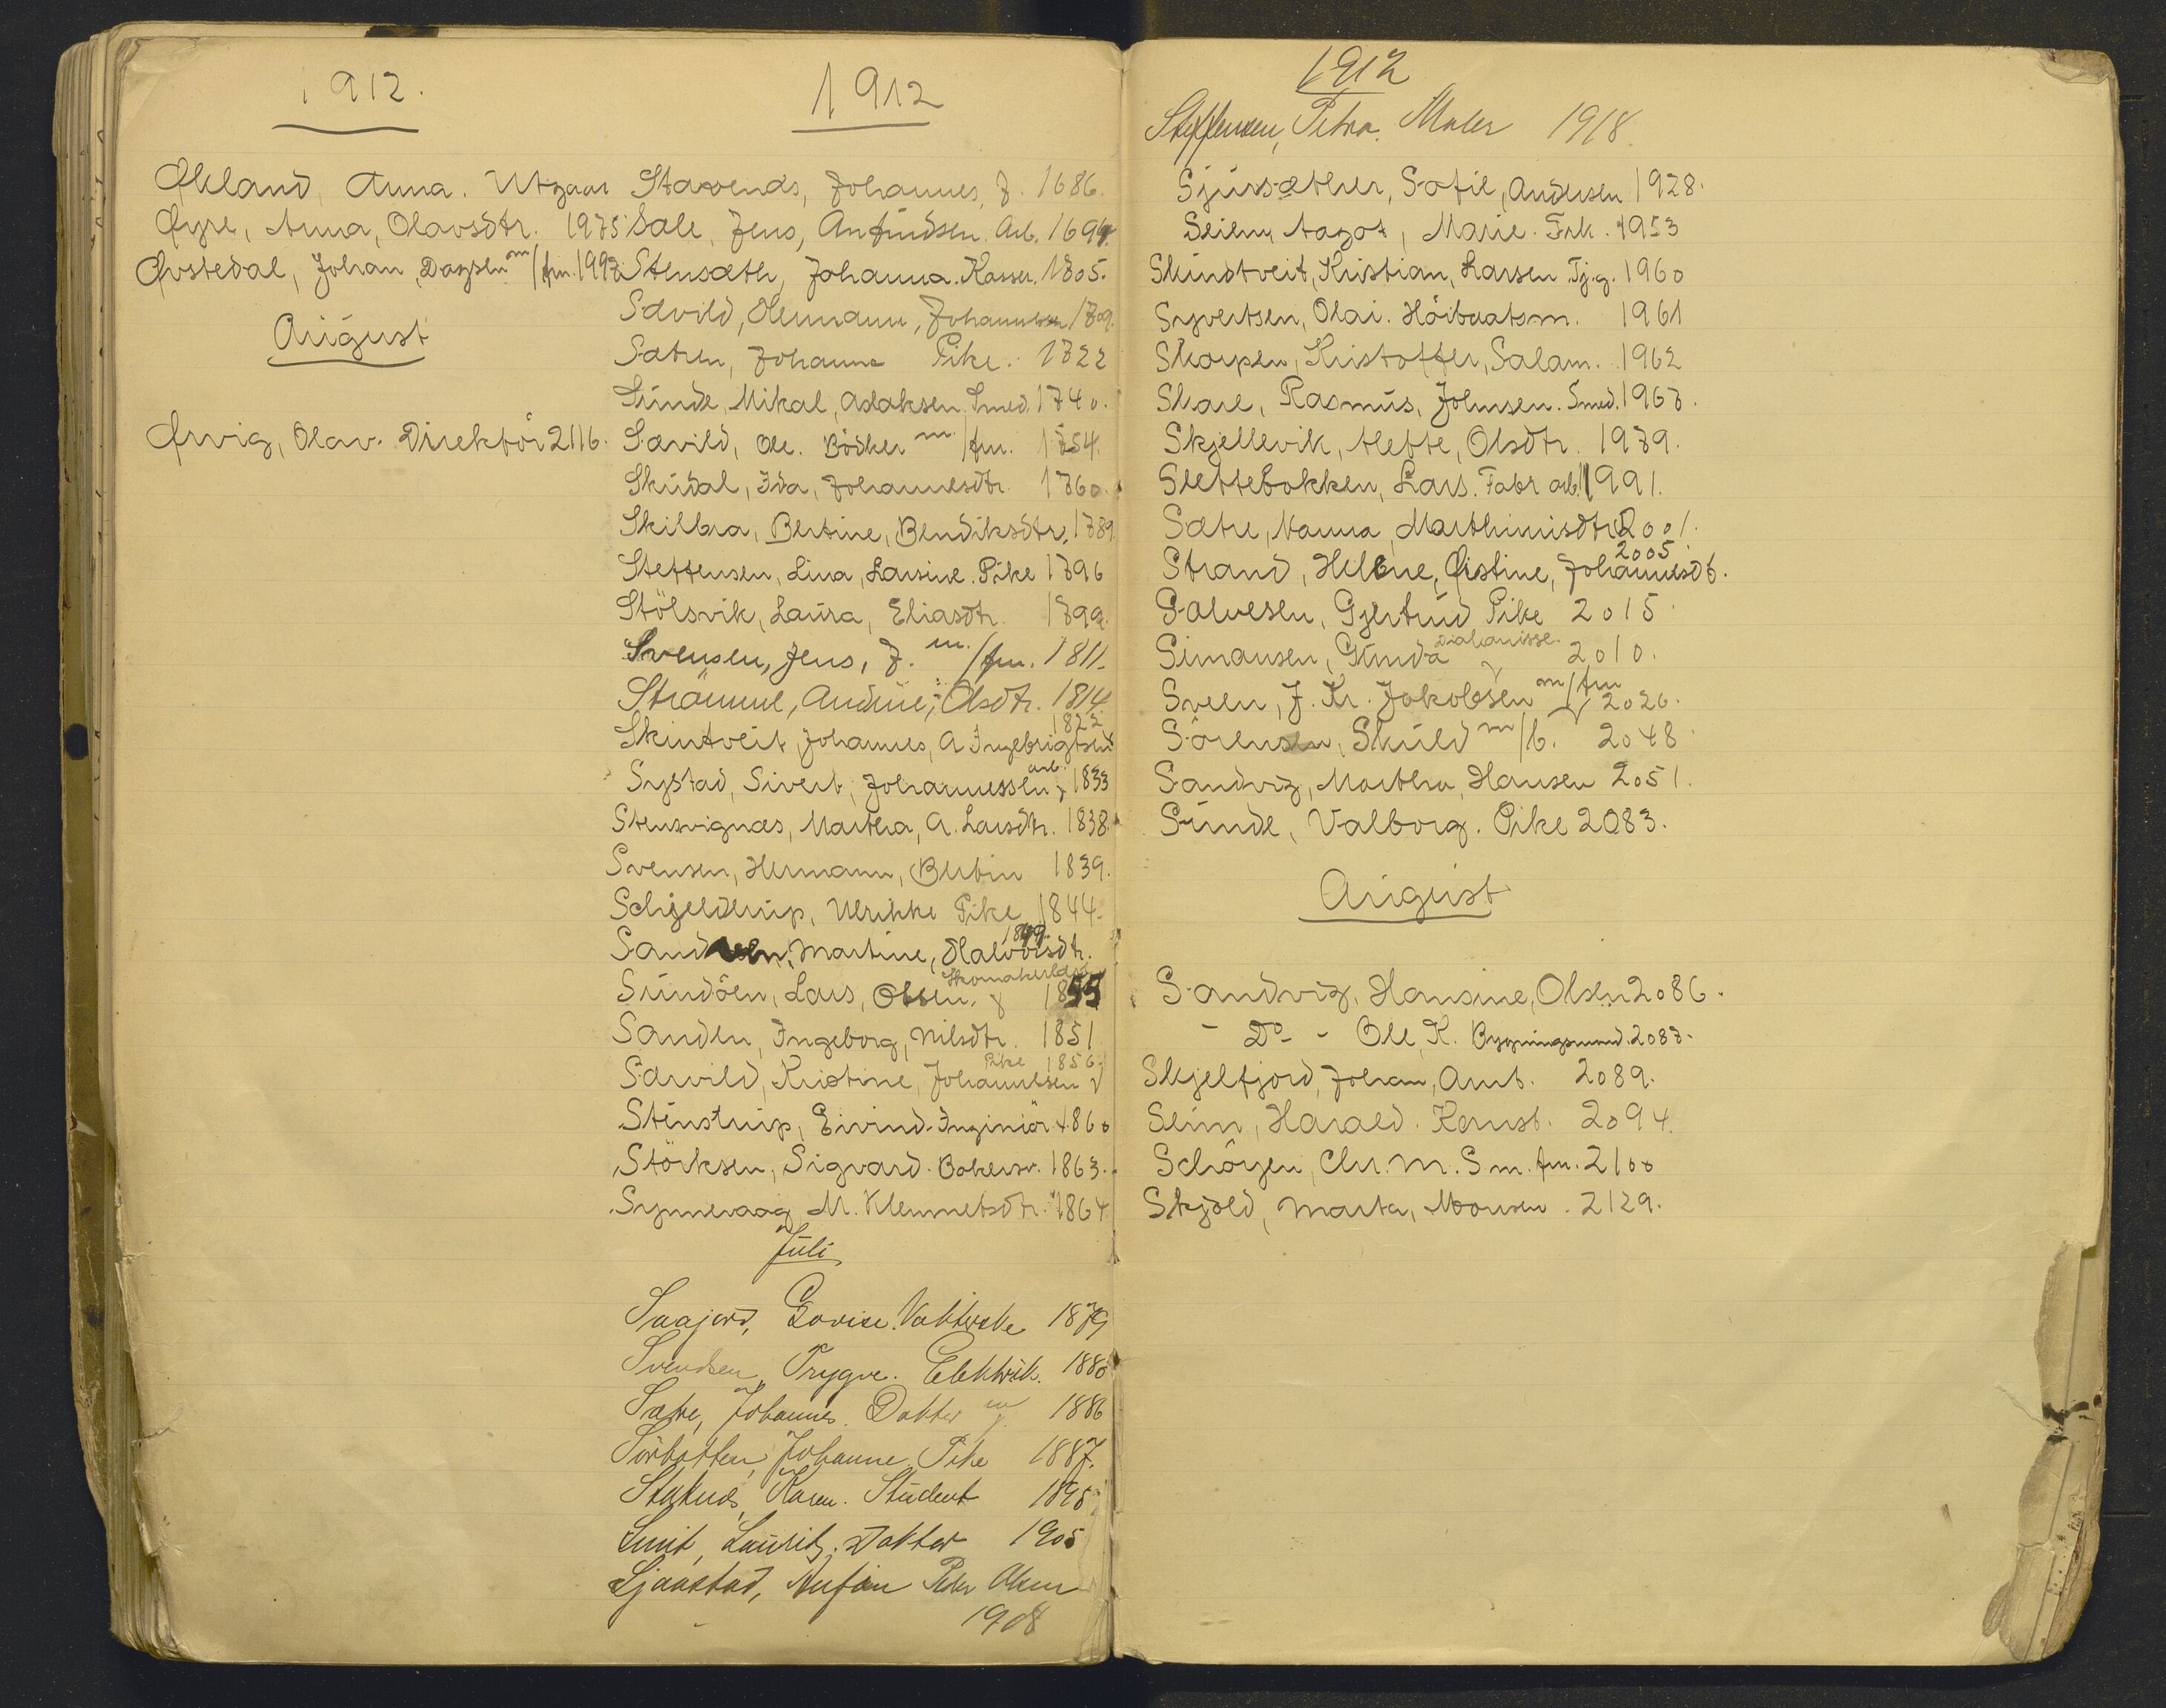 1912.
Økland, Anna. Utgaar
Øyre, Anna, Olavsdtr. 1975
Øvstedal, Johan, Dagsen m/fm. 1993
August
Ørvig, Olav. Direktör 2116.
1912
Stavenæs, Johannes, J. 1686.
Sale, Jens, Anfindsen. Arb. 1694.
Stensæth, Johanna. Kasser. 1705.
Sævild, Olemann, Johannesen 1709.
Sætren, Johanne Pike. 1722
Sunde, Mikal, Aslaksen. Smed. 1740.
Sævild, Ole. Bödker m/fm. 1754.
Skudal, Ida, Johannesdtr. 1760.
Skilbra, Bertine, Bendiksdtr. 1789
Steffensen, Lina, Larsine. Pike 1796
Stölsvik, Laura, Eliasdtr. 1799.
Svensen, Jens, J. m./fm. 1811.
Strömme, Andrine, Olsdtr. 1814.
1822
Skintveit, Johannes, A Ingebrigtsen
Systad, Sivert, Johannessen arb. 1833
Stensvignæs, Martha, A. Larsdtr. 1838.
Svensen, Hermann, Bertin 1839.
Schjelderup, Ulrikke Pike 1844.
1849.
Sandven, Martine, Halvorsdtr.
Sundöen, Lars, Olsen. 1855
Sanden, Ingeborg, Nilsdtr. 1851
Pike 1856.
Sævild, Kristine, Johannesen
Stenstrup, Eivind. Inginiör 1860
Störksen, Sigvard. Bokersv. 1863.
Synnevaag M. Klemmetsdtr. 1864
Juli
Saajord, Lovise. Vakterske 1879
Svendsen, Trygve. Elektrik. 1880
Sætre, Johannes. Dokter m 1886
Sörbotten, Johanne Pike 1887.
Karen. Student 1895
Smit, Lauritz. Dokter 1905
Sjaastad, Peder Olsen
1908
1912
Steffensen, Petra. Maler 1918.
Sjursæther, Sofie, Andersen 1928.
Seiem, Aagot, Marie. Frk. 1953
Skindtveit, Kristian, Larsen Tj.g. 1960
Syvertsen, Olai. Höibaatsm. 1961
Skorpen, Kristoffer, Salam. 1962
Skare, Rasmus, Johnsen. Smed. 1967.
Skjellevik, Mette, Olsdtr. 1979.
Slettebakken, Lars. Fabr arb. 1991.
Sætre, Nanna, Marthinisdtr. 2001.
2005.
Strand, Helene, Øistine, Johannesdt.
Salvesen, Gjertrud Pike 2015.
Simonsen, Gunda Diakonisse. 2010.
Sveen, J. Kr. Jakobsen m/fm 2026.
Sörensen, Skuld m/b. 2048
Sandvig, Martha, Hansen 2051.
Sunde, Valborg. Pike 2083.
August
Sandvig, Hansine, Olsen 2086.
- Do - Ole, K. Bygningsmand. 2087.
Skjelfjord, Johan, Amt. 2089.
Seim, Harald. Konst. 2094.
Schöyen, Chr. M. S m. fm. 2100
Skjold, Marta, Monsen. 2129.